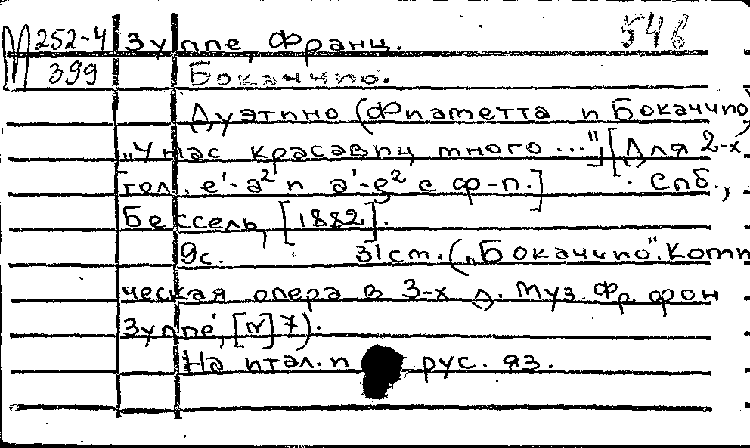 М 252-4 Зуппе, Франц. 546
399 Бокаччио.
Дуэтино (Фиаметта и Бокаччио)
„У нас красавиц много ...", [Для 2-х
гол. e¹-a² и a¹-e² с ф-п.] Спб.,
Бессель, [1882].
9с. 31 см. („Бокаччио". Коми
ческая опера в 3-х д. Муз. Фр. фон
Зуппе, [№] 7).
На итал. и рус. яз.